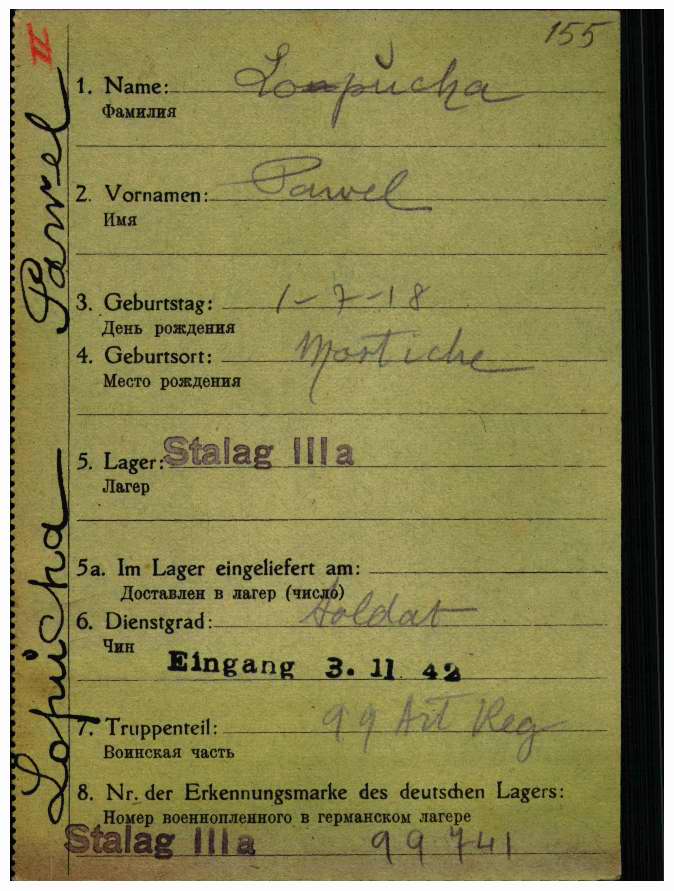 II
155
1. Name: Lopucha
Фамилия
2. Vornamen: Pawel
Имя
3. Geburtstag: 1-7-18
День рождения
4. Geburtsort: Mostiche
Место рождения
5. Lager: Stalag IIIa
Лагер
5a. Im Lager eingeliefert am:
Доставлен в лагер (число)
6. Dienstgrad: Soldat
Чин
Eingang 3. 11 42
7. Truppenteil: 99 Art Reg
Воинская часть
8. Nr. der Erkennungsmarke des deutschen Lagers:
Номер военнопленного в германском лагере
Stalag IIIa 99741
Lopucha Pawel